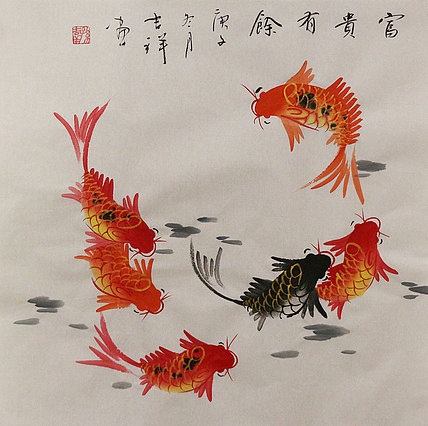 富貴有餘
庚子
冬月
吉祥